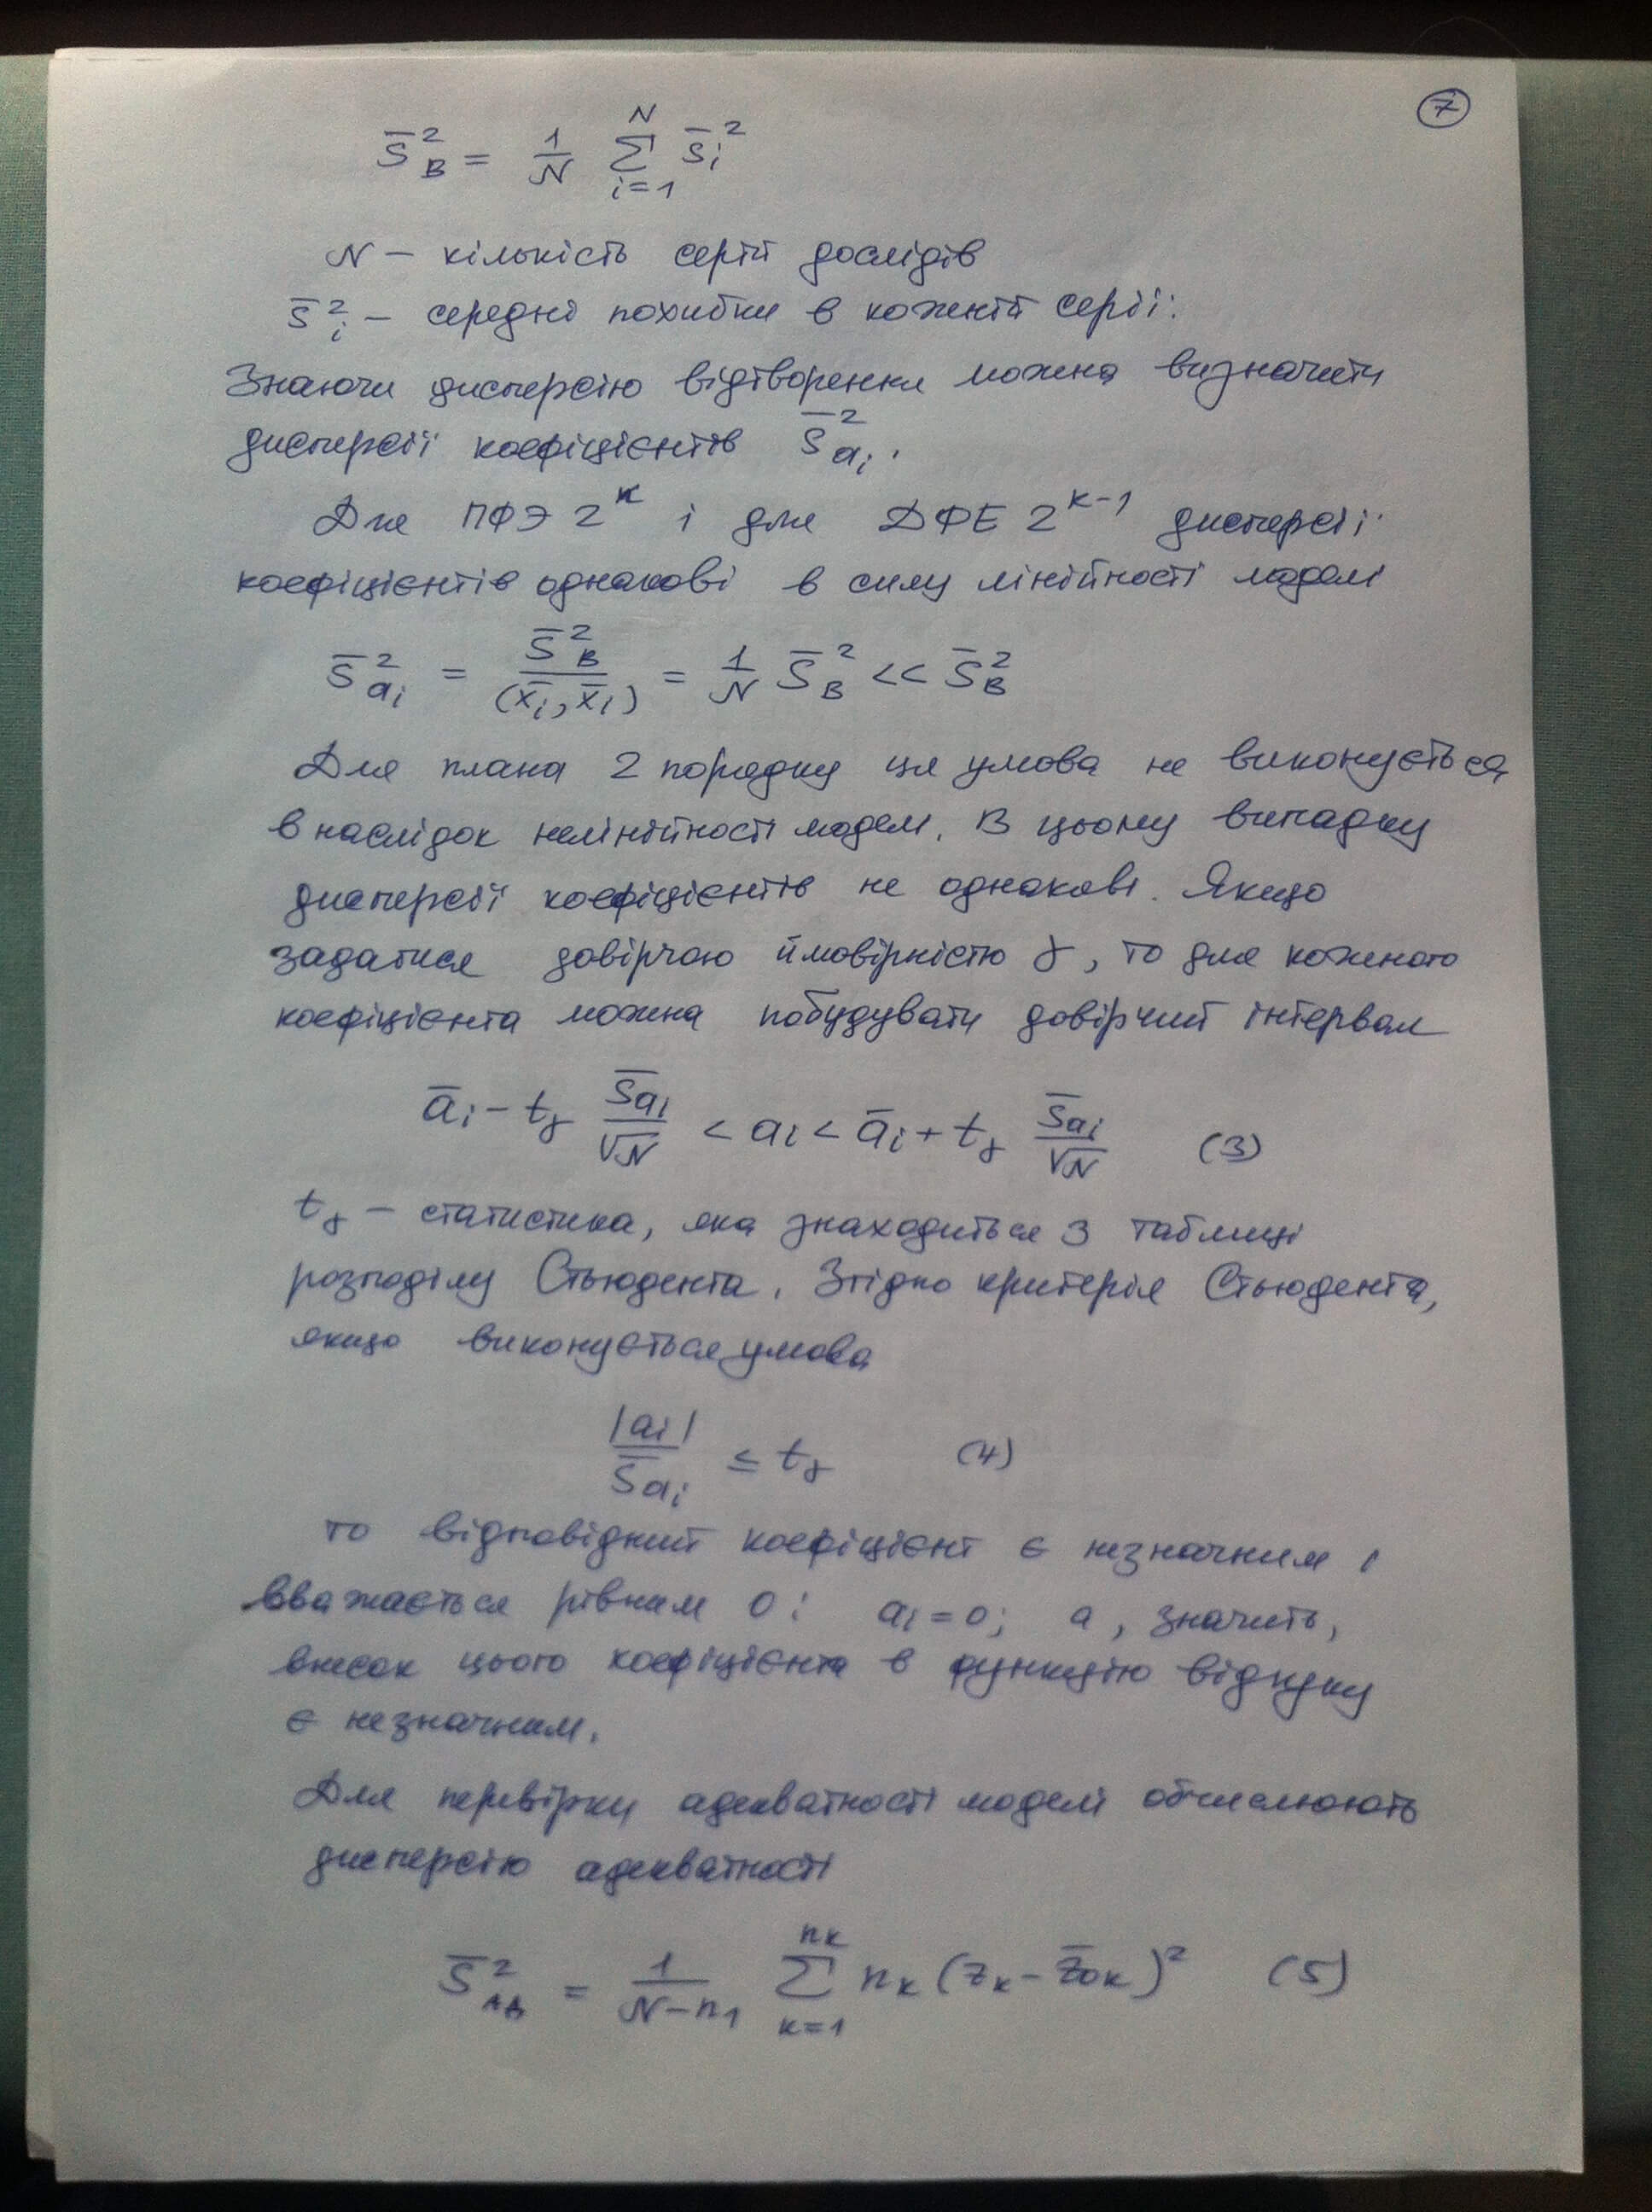 7
S̄²_B = 1/N Σ_{i=1}^{N} s̄_i²
N – кількість серій дослідів
s̄²_i – середні похибки в кожній серії:
Знаючи дисперсію відтворення можна визначити
дисперсії коефіцієнтів S̄²_{a_i}.
Для ПФЭ 2^k і для ДФЕ 2^{k-1} дисперсії
коефіцієнтів однакові в силу лінійності моделі
S̄²_{a_i} = S̄²_B / (x̄_i, x̄_i) = 1/N S̄²_B << S̄²_B
Для плана 2 порядку ця умова не виконується
внаслідок нелінійності моделі. В цьому випадку
дисперсії коефіцієнтів не однакові. Якщо
задатися довірчою ймовірністю γ, то для кожного
коефіцієнта можна побудувати довірчий інтервал
ā_i – t_γ S̄_{a_i}/√N < a_i < ā_i + t_γ S̄_{a_i}/√N (3)
t_γ – статистика, яка знаходиться з таблиці
розподілу Стьюдента. Згідно критерія Стьюдента,
якщо виконується умова
|a_i| / S̄_{a_i} ≤ t_γ (4)
то відповідний коефіцієнт є незначним і
вважається рівним 0: a_i = 0; а, значить,
внесок цього коефіцієнта в функцію відгуку
є незначним.
Для перевірки адекватності моделі обчислюють
дисперсію адекватності
S̄²_{АД} = 1/(N – n_1) Σ_{k=1}^{n_k} n_k (z_k – z̄_{0k})² (5)